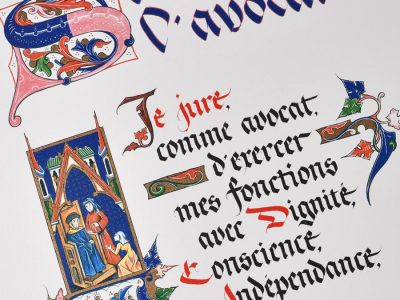 l'avocat
Je jure,
comme avocat,
d'exercer
mes fonctions
avec Dignité,
Conscience,
Indépendance,